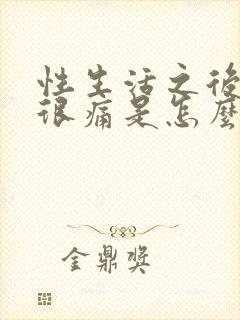 性生活之後
很痛是怎麼
金鼎獎